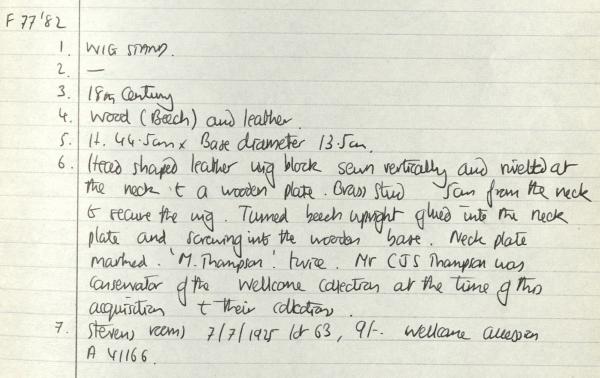 F 77'82
1. WIG STAND.
2. —
3. 18th Century
4. Wood (Beech) and leather.
5. H. 44.5cm x Base diameter 13.5cm.
6. Head shaped leather wig block sewn vertically and rivetted at
the neck to a wooden plate. Brass stud 5cm from the neck
to secure the wig. Turned beech upright glued into the neck
plate and screwing into the wooden base. Neck plate
marked. 'M. Thompson'. twice. Mr CJS Thompson was
Conservator of the Wellcome Collection at the time of this
acquisition to their collections.
7. Stevens rooms 7/7/1925 lot 63, 9/-. Wellcome accession
A 41166.